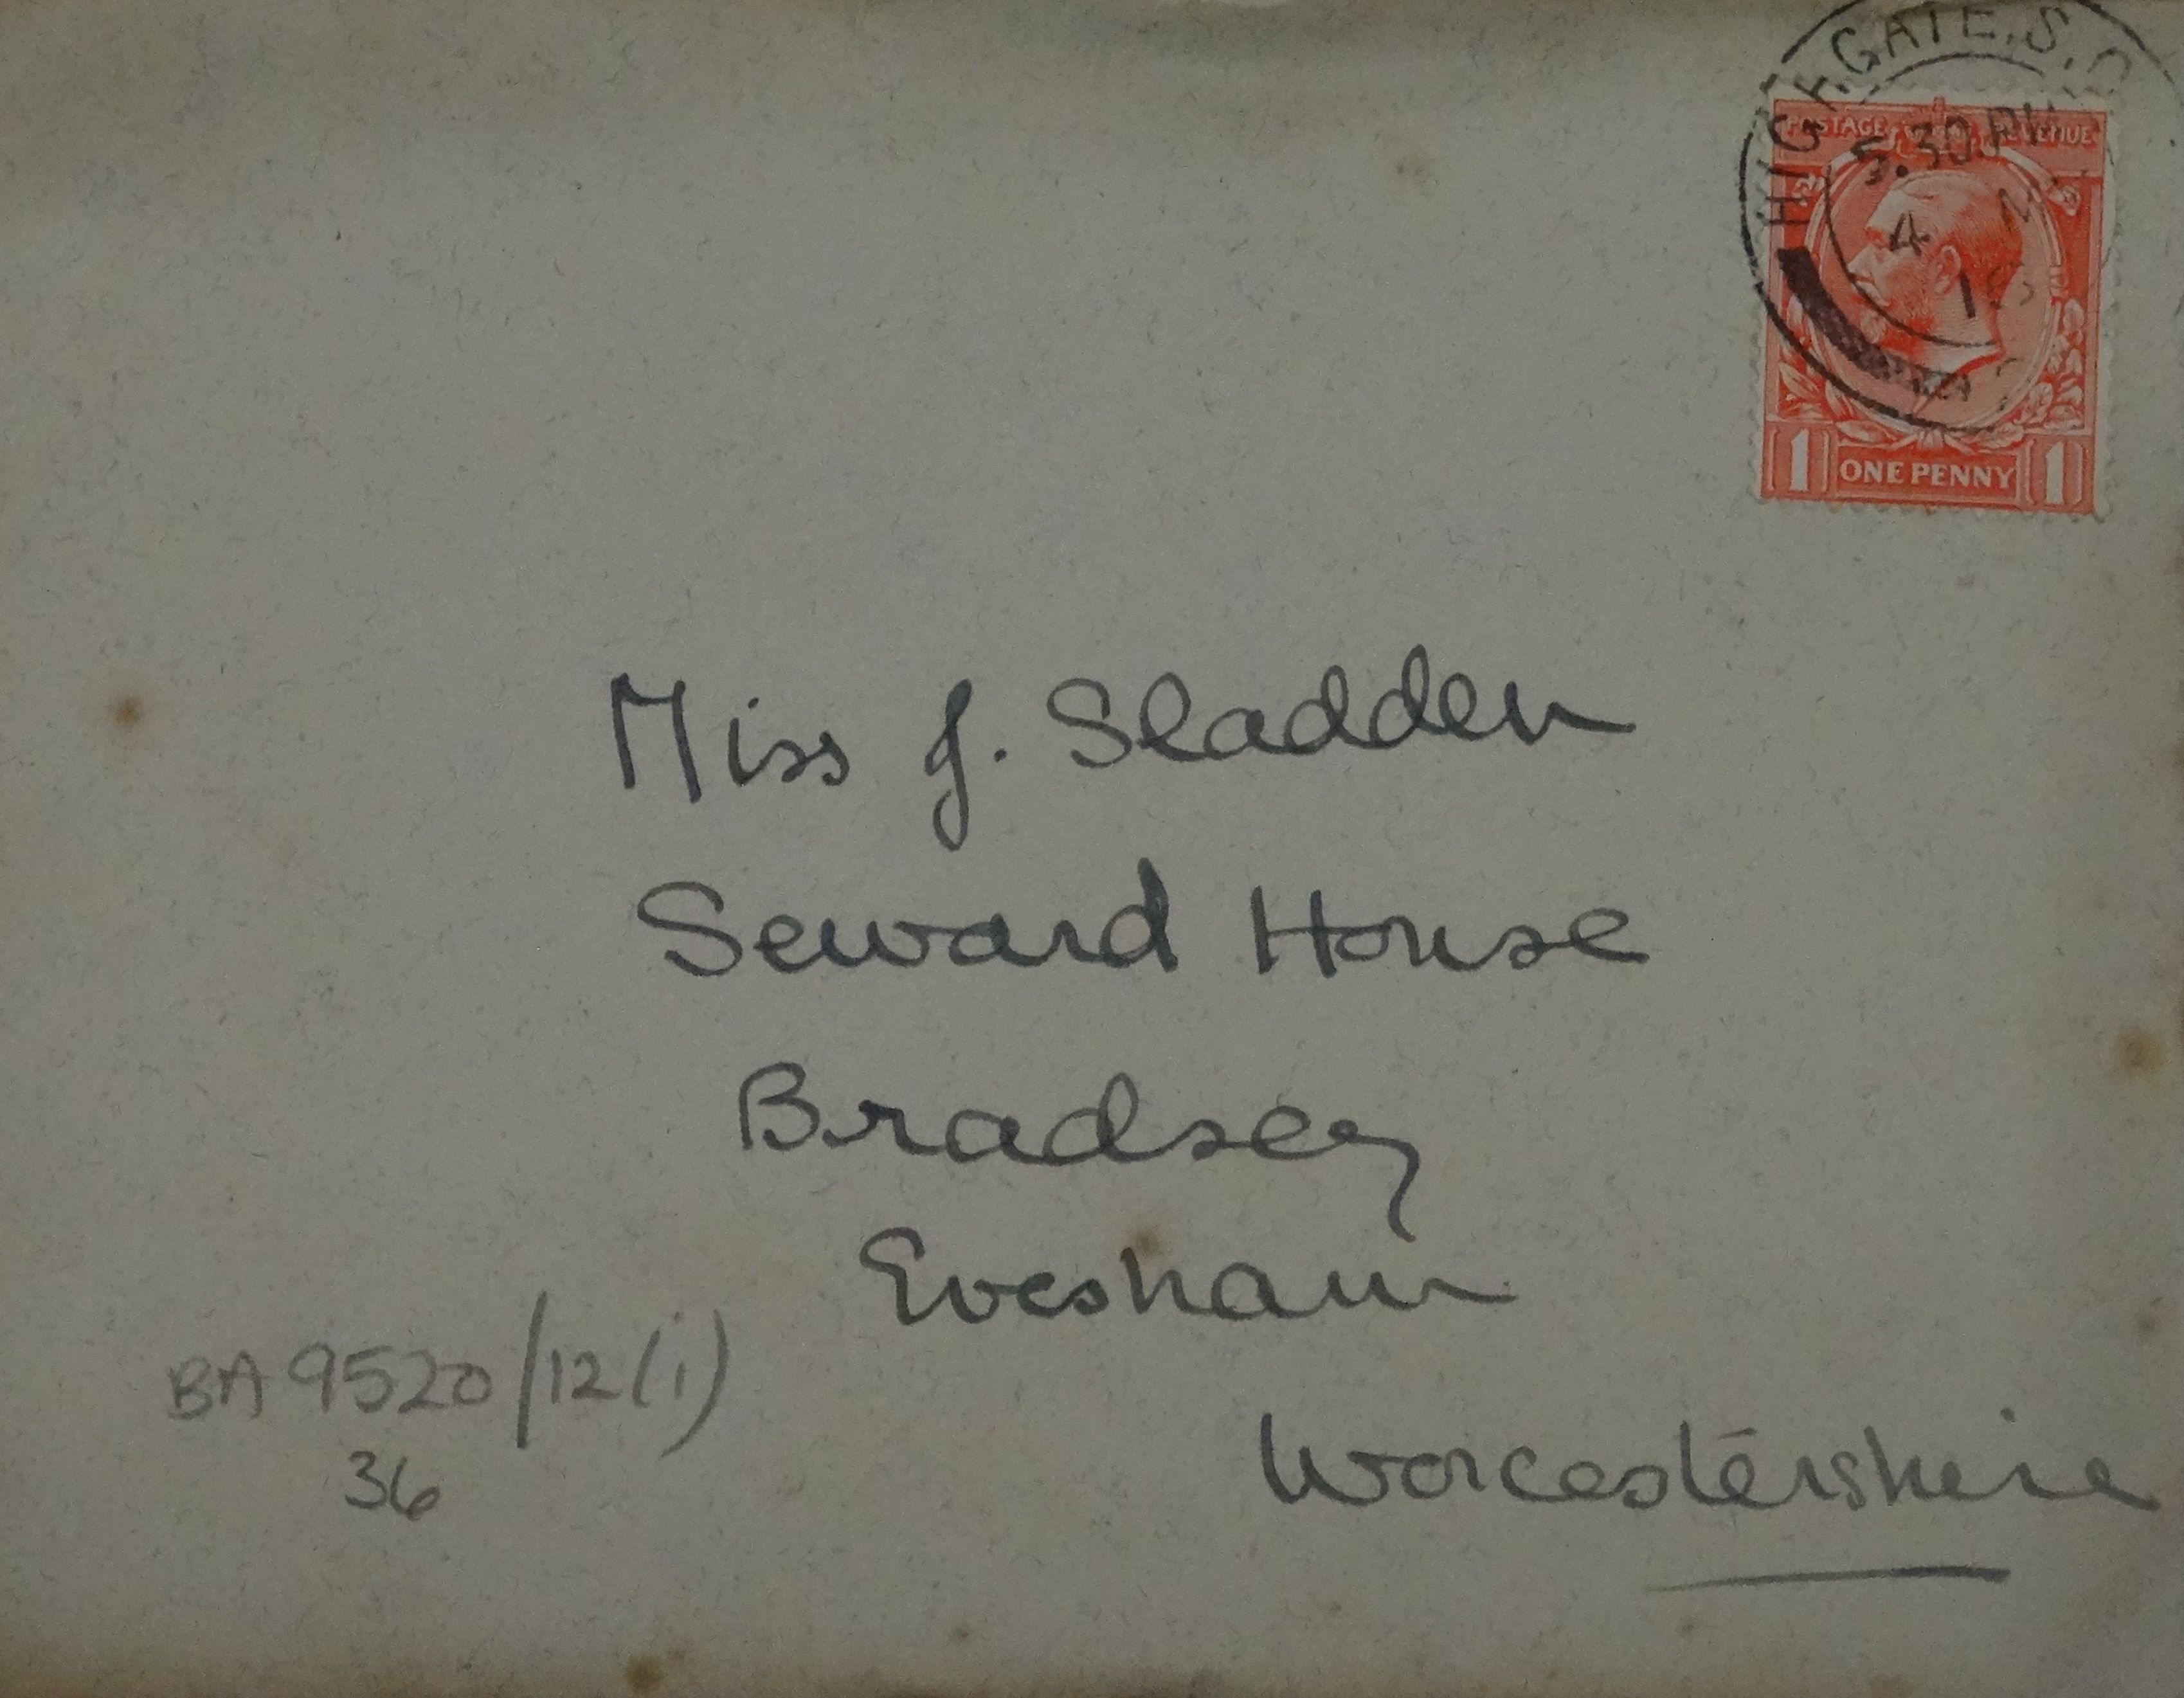 HIGHGATE. S. O.
POSTAGE REVENUE
5.30 PM
4
ONE PENNY
1 1
Miss J. Sladden
Seward House
Bradsey
Evesham
Worcestershire
BA 9520/12(i)
36